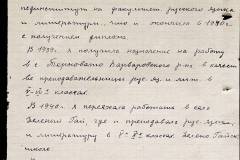 пединститут на факультет русского языка
и литературы, что и окончила в 1940 г.
с получением диплома
В 1939 г. я получила назначение на работу
в с. Терноватое р-на в качест-
ве преподавательницы рус. яз. и лит. в
V-VII классах.
В 1940 г. я переехала работать в село
Зеленый Гай, где и преподавала рус. язык
и литературу в V-х классах Зелено Гайск